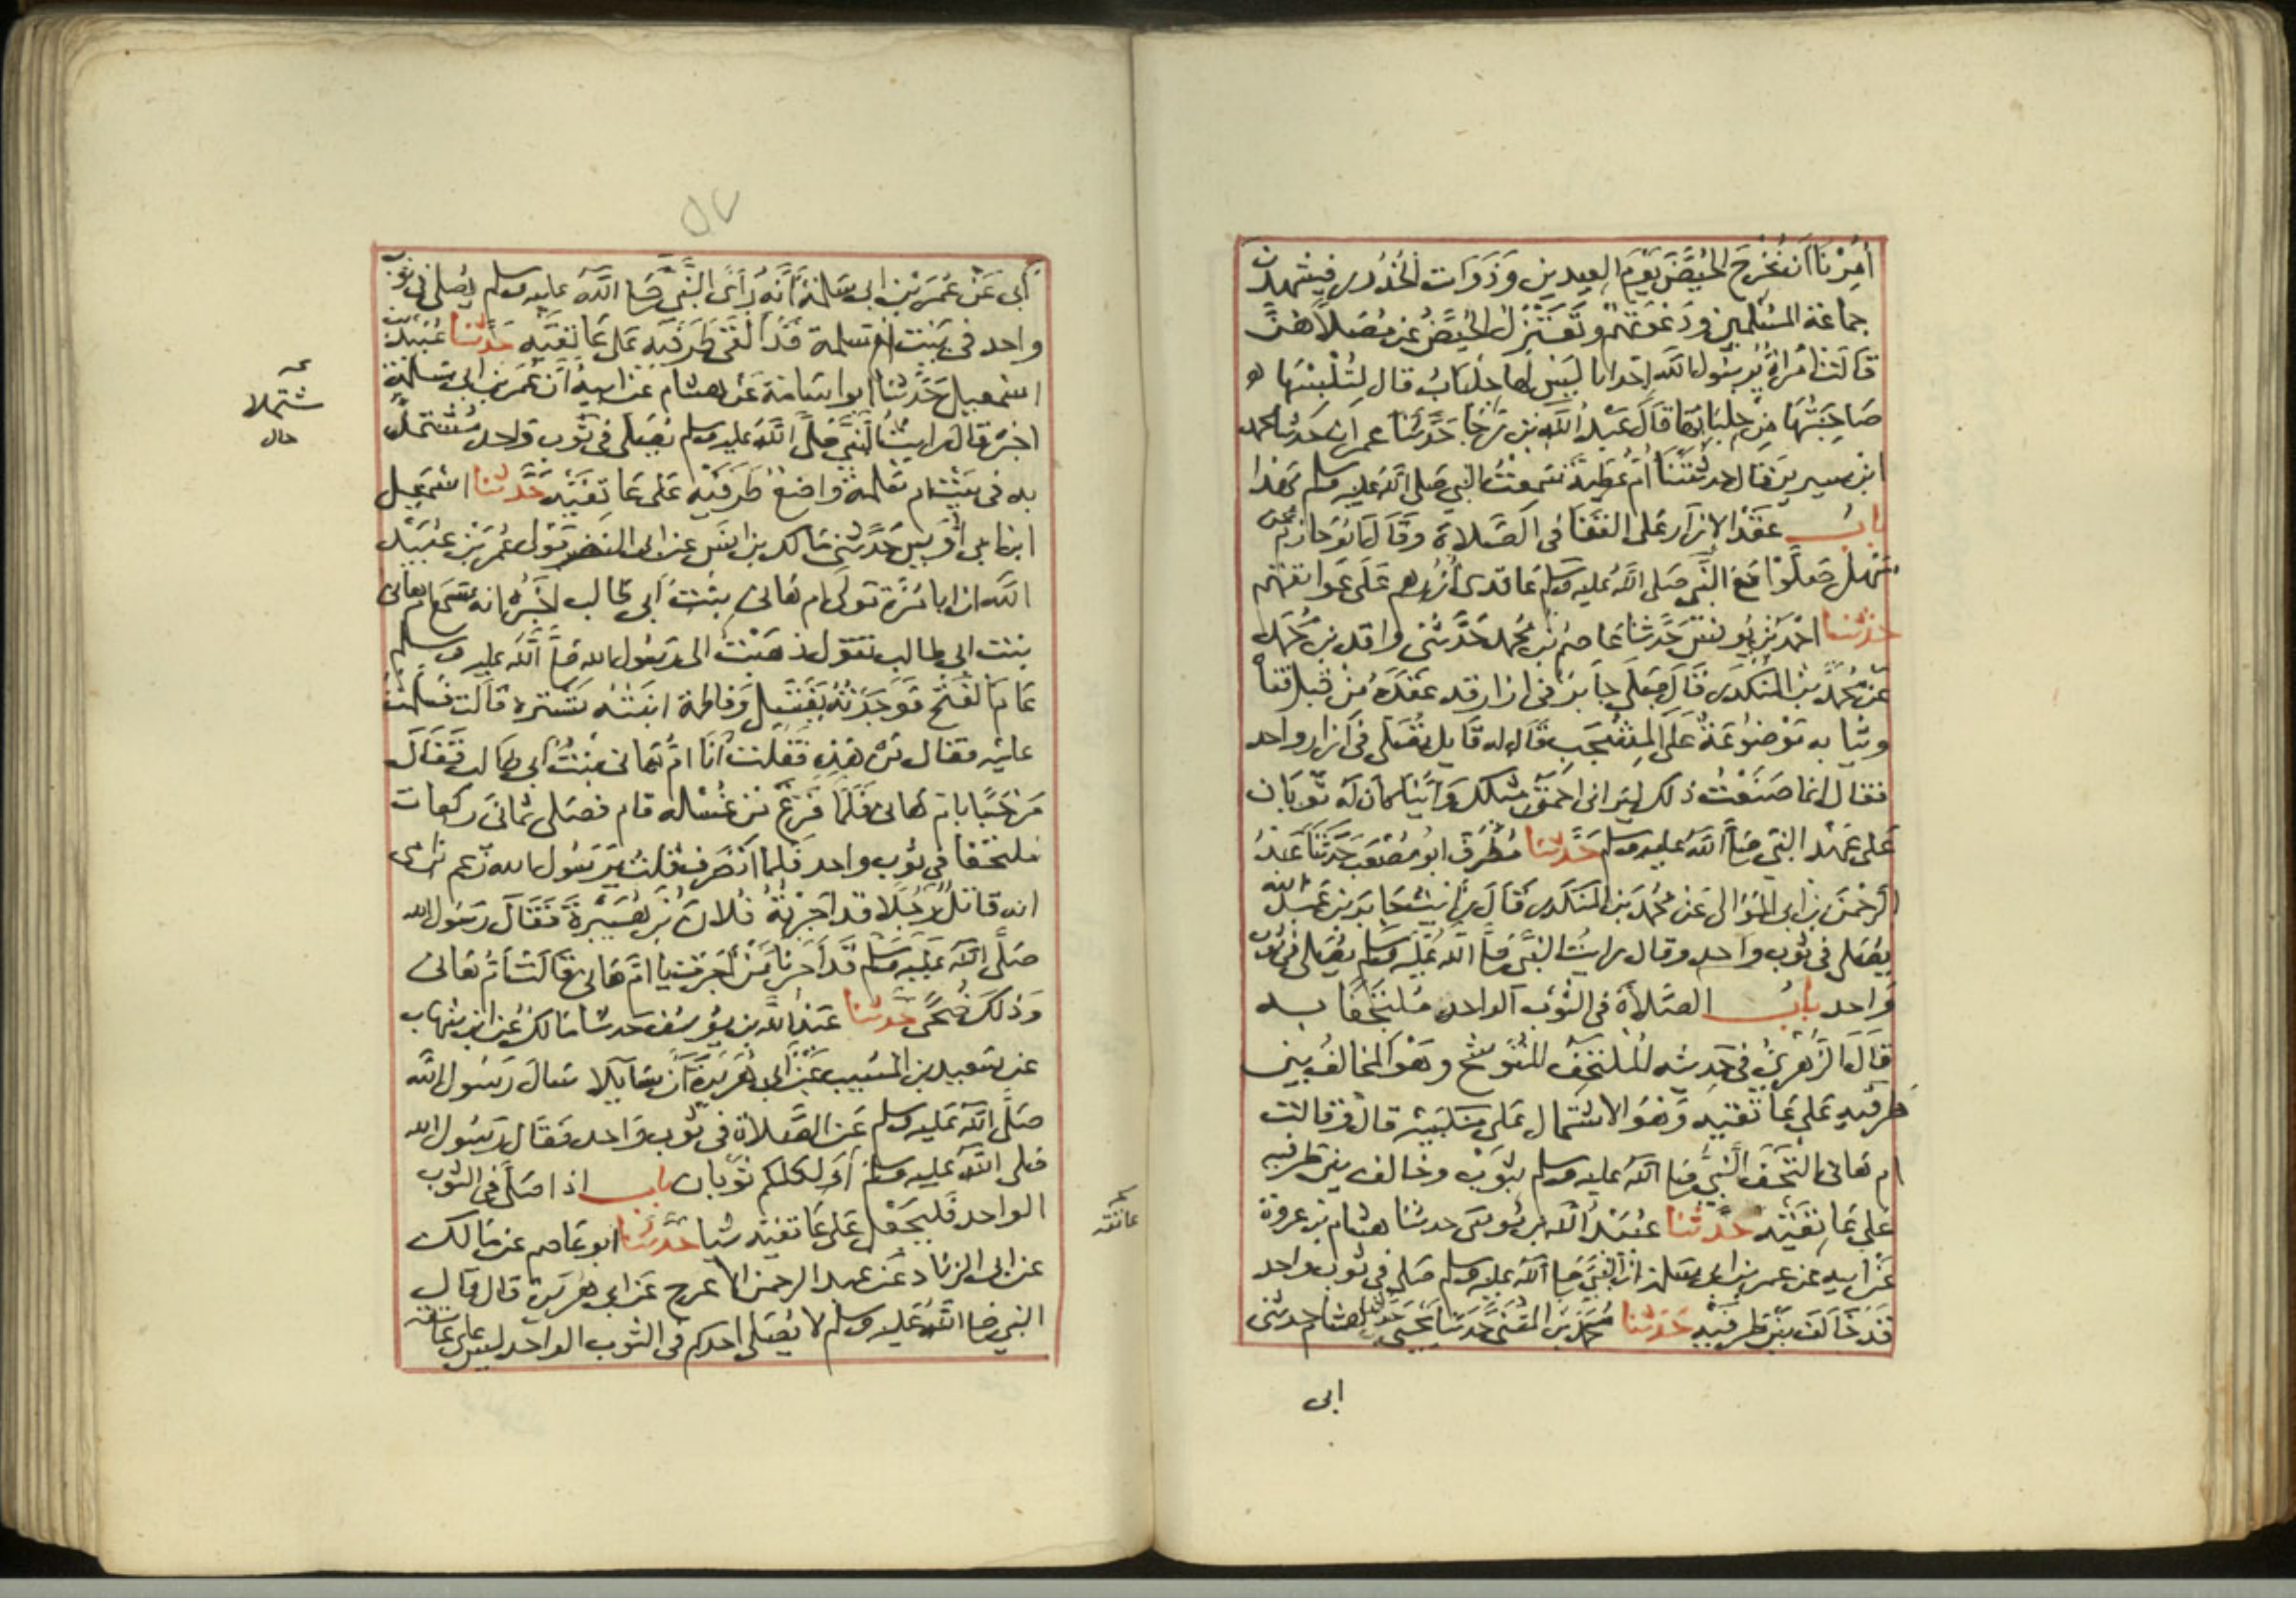 أمرنا أن نخرج الحيض يوم العيدين وذوات الخدور فيشهدن
جماعة المسلمين ودعوتهم وتعتزل الحيض عن مصلاهن
قالت امرأة يرسول الله إحدانا ليس لها جلباب قال لتلبسها
صاحبتها من جلبابها قال عبد الله بن رجا حدثنا عمران حدثنا محمد
ابن سيرين قال حدثتنا أم عطية سمعت النبي صلى الله عليه وسلم بهذا
باب عقد الإزار على القفا في الصلاة وقال أبو حازم عن
سهل صلوا مع النبي صلى الله عليه وسلم عاقدى أزرهم على عواتقهم
حدثنا احمد بن يونس حدثنا عاصم بن محمد حدثني واقد بن محمد
عن محمد بن المنكدر قال صلى جابر في ازار قد عقده من قبل قفاه
وثيابه موضوعة على المشجب قال له قايل تصلى في ازار واحد
فقال انما صنعت ذلك ليراني احمق مثلك وأينا كان له ثوبان
على عهد النبي صلى الله عليه وسلم حدثنا مطرف ابو مصعب حدثنا عبد
الرحمن بن ابى الموالى عن محمد بن المنكدر قال رأيت جابر بن عبد الله
يصلى في ثوب واحد وقال رايت النبي صلى الله عليه وسلم يصلى في ثوب
واحد باب الصلاة في الثوب الواحد ملتحفا به
قال الزهري في حديثه الملتحف المتوشح وهو المخالف بين
طرفيه على عاتقيه وهو الاشتمال على منكبيه قال وقالت
ام هانى التحف النبي صلى الله عليه وسلم بثوب وخالف بين طرفيه
على عاتقيه حدثنا عبيد الله بن موسى حدثنا هشام بن عروة
عن ابيه عن عمر بن ابى سلمة ان النبي صلى الله عليه وسلم صلى في ثوب واحد
قد خالف بين طرفيه حدثنا محمد بن المثنى حدثنا يحيى حدثنا هشام حدثنى
ابى
أبى عن عمر بن ابى سلمة أنه رأى النبي صلى الله عليه وسلم يصلى في ثوب
واحد في بيت ام سلمة قد القى طرفيه على عاتقيه حدثنا عبيد بن
اسمعيل حدثنا ابو اسامة عن هشام عن ابيه أن عمر بن ابى سلمة
اخبره قال رايت النبي صلى الله عليه وسلم يصلى في ثوب واحد مشتمل
به في بيت ام سلمة واضع طرفيه على عاتقيه حدثنا اسمعيل
ابن ابى أويس حدثنى مالك بن انس عن ابى النضر مولى عمر بن عبيد
الله ان ابا مرة مولى ام هانى بنت أبى طالب اخبره انه سمع ام هانى
بنت ابى طالب تقول ذهبت الى رسول الله صلى الله عليه وسلم
عام الفتح فوجدته يغتسل وفاطمة ابنته تستره قالت فسلمت
عليه فقال من هذه فقلت أنا ام هانى بنت أبى طالب فقال
مرحبا بام هانى فلما فرغ من غسله قام فصلى ثمانى ركعات
ملتحفا في ثوب واحد فلما انصرف قلت يرسول الله زعم ابن امى
انه قاتل رجلا قد أجرته فلان بن هبيرة فقال رسول الله
صلى الله عليه وسلم قد أجرنا من أجرت يا ام هانى قالت أم هانى
وذلك ضحى حدثنا عبد الله بن يوسف حدثنا مالك عن ابن شهاب
عن سعيد بن المسيب عن أبى هريرة أن سايلا سال رسول الله
صلى الله عليه وسلم عن الصلاة في ثوب واحد فقال رسول الله
صلى الله عليه وسلم أو لكلكم ثوبان باب اذا صلى في الثوب
الواحد فليجعل على عاتقيه شيا حدثنا ابو عاصم عن مالك
عن ابى الزناد عن عبد الرحمن الاعرج عن ابى هريرة قال قال
النبي صلى الله عليه وسلم لا يصلى احدكم في الثوب الواحد ليس على عاتقه
مشتملا
حال
عاتقه